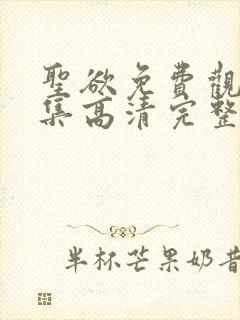 聖欲免費觀
集高清完整
半杯芒果奶昔